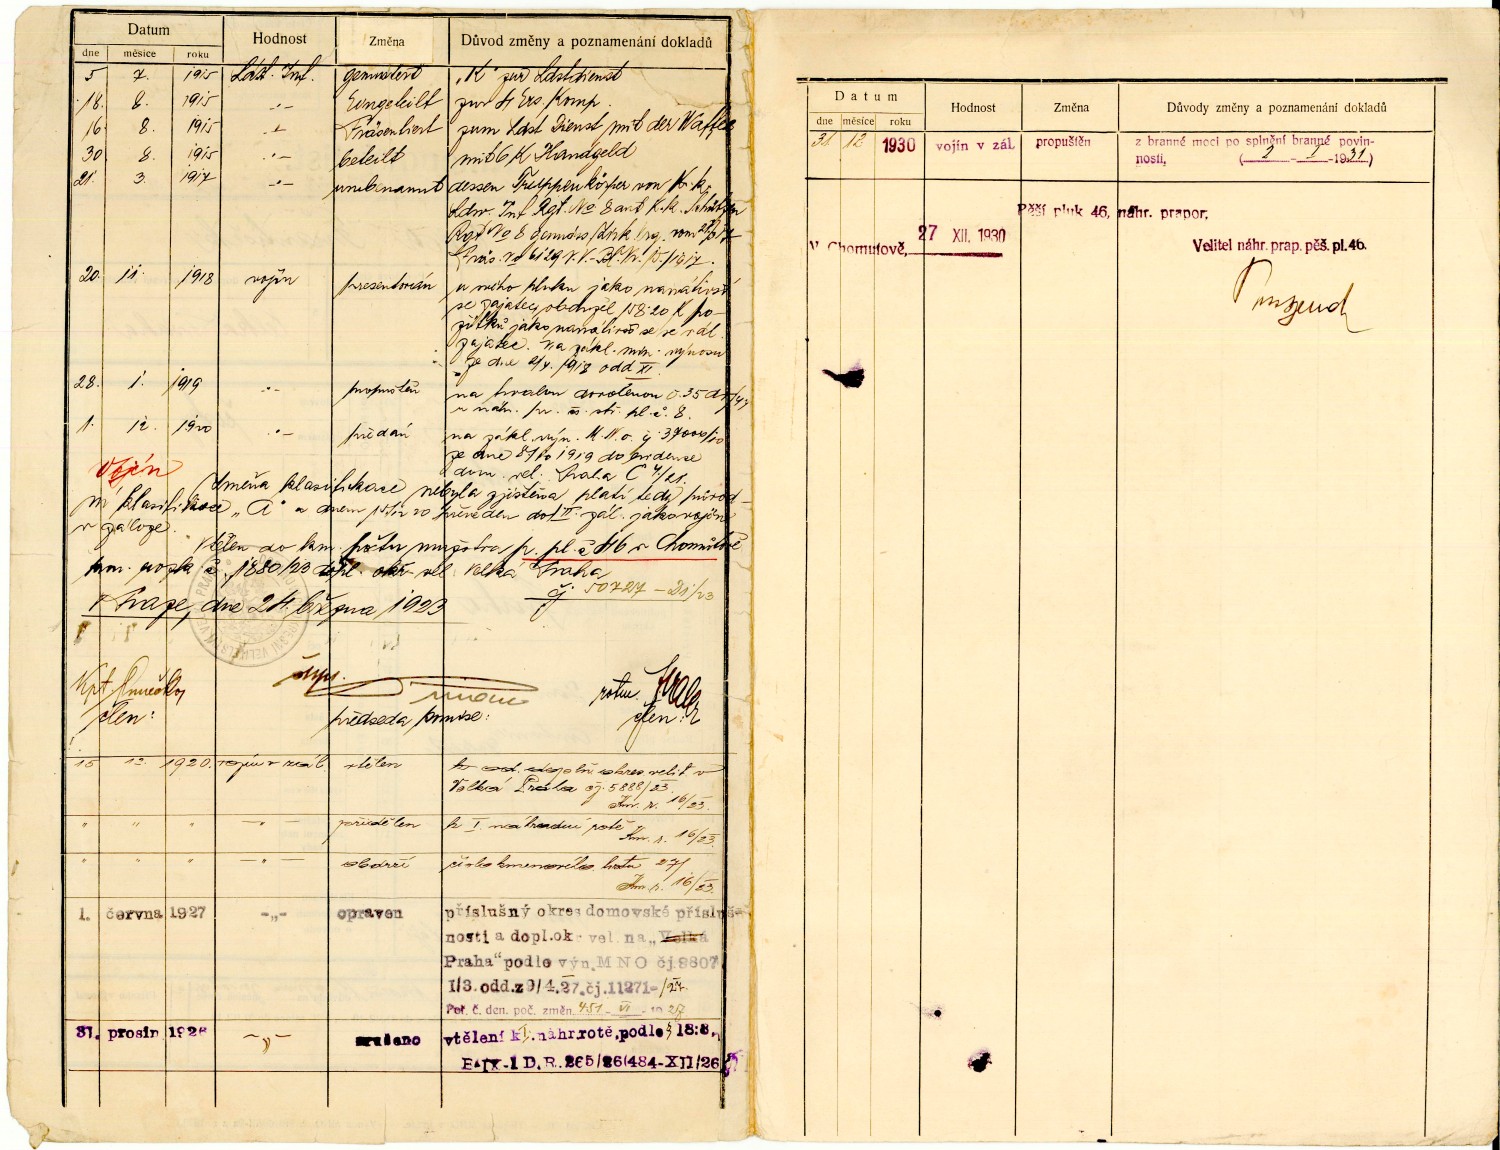 Datum Hodnost Změna Důvod změny a poznamenání dokladů
dne měsíce roku
5 7. 1915 Ldst. Inf. gemustert „K" zur Ldstdienst
18. 8. 1915 -"- Eingeteilt zur 4 Ers. Komp.
16 8. 1915 -"- Präsentiert zum Ldst Dienst mit der Waffe
30 8. 1915 -"- beteilt mit 6 K Handgeld
21. 3. 1917 -"- umbenannt dessen Truppenkörper von K. k.
Ldw. Inf Rgt. No 8 auf K. k. Schützen
Rgt No 8 gemäss Zirk.
20. 11. 1918 vojín presentován u svého pluku jako navrátivší
se zajatec, obdržel 158.20 K po-
žitků jako navrátivší se vál.
zajatec. Na zákl. min. výnosu
ze dne 1918 odd XI.
28. 1. 1919 -"- propuštěn na trvalou dovolenou
u náh. pr. stř. pl. č. 8.
1. 12. 1920 -"- předán na zákl. výn. M.N.O. čj.
ze dne 1919 do evidence
dopl. vel. Praha
Vojín
Změna klasifikace nebyla zjištěna platí tedy původ-
ní klasifikace „A" a dnem převeden do II. zál. jako vojín
v záloze.
Vtělen do km. počtu mužstva p. pl. č 46 v Chomutově
č. 1880/23 dopl. okr. vel. Velká Praha
čj 50727 - 21/23
V Praze, dne 24. března 1923
Kpt.
člen:
předseda komise:
rotm.
člen:
15 12. 1920. vojín v zál. vtělen
Velká Praha čj. 5888/23.
Km. r. 16/23.
" " " -"- přidělen k I. náhradní rotě
Km. r. 16/23.
" " " -"- obdrží číslo kmenového listu 27/
Km. r. 16/23.
1. června 1927 -„- opraven příslušný okres domovské přísluš-
nosti a dopl.okr vel. na „Velká
Praha" podle výn. MNO čj.9807
I/3.odd.z 9/4.27.čj.11271-/27.
Poř. č. den. poč. změn. 451 - VI - 1927
31. prosin 1926 -„- zrušeno vtělení k I. náhr.rotě,podle § 18:8,
B-IX-1 D.R. 265/26(484-XII/26
Datum Hodnost Změna Důvody změny a poznamenání dokladů
dne měsíce roku
31 12 1930 vojín v zál. propuštěn z branné moci po splnění branné povin-
nosti, (2 - I - 1931)
Pěší pluk 46, náhr. prapor.
V Chomutově, 27 XII. 1930
Velitel náhr. prap. pěš. pl. 46.